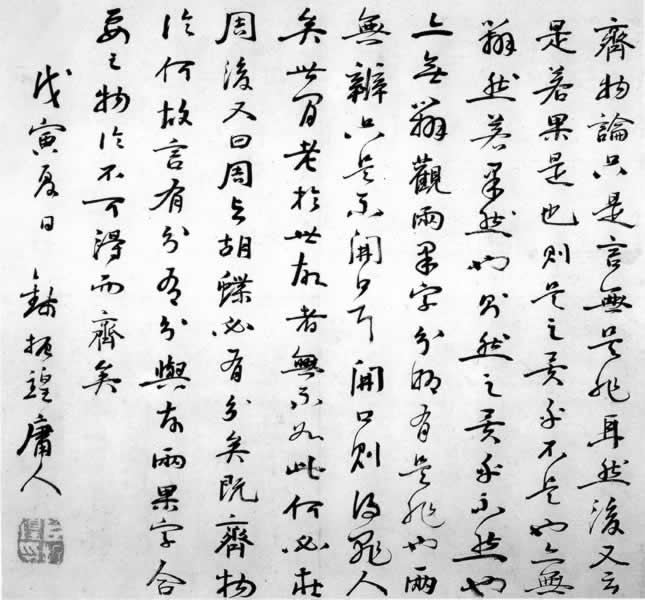 齊物論只是言無是非耳然後又云
是若果是也則是之異乎不是也亦無
辯然若果然也則然之異乎不然也
亦無辯觀兩果字分明有是非也兩
無辯只是不開口耳開口則得罪人
矣世間老於世故者無不如此何必莊
周後又曰周與胡蝶必有分矣既齊物
論何故言有分有分與前兩果字合
要之物論不可得而齊矣
戊寅夏日 錢振鍠庸人